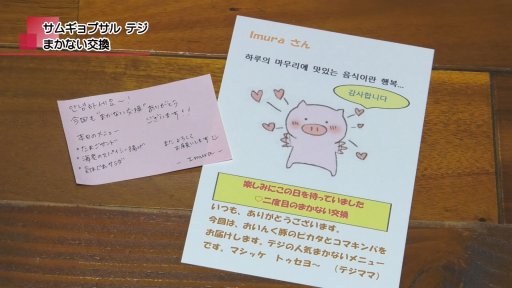 サムギョプサル テジ
まかない交換
안녕하세요~!
今回もまかない交換ありがとう
ございます!!
本日のメニュー
・たまごサンド
・海老のスパイシー揚げ
またよろしく
お願いします
- Imura -
Imura さん
하루의 마무리에 맛있는 음식이란 행복...
감사합니다
楽しみにこの日を待っていました
♡二度目のまかない交換
いつも、ありがとうございます。
今回は、おいんく豚のピカタとコマキンパを
お届けします。テジの人気まかないメニュー
です。マシッケ トゥセヨ~ (テジママ)